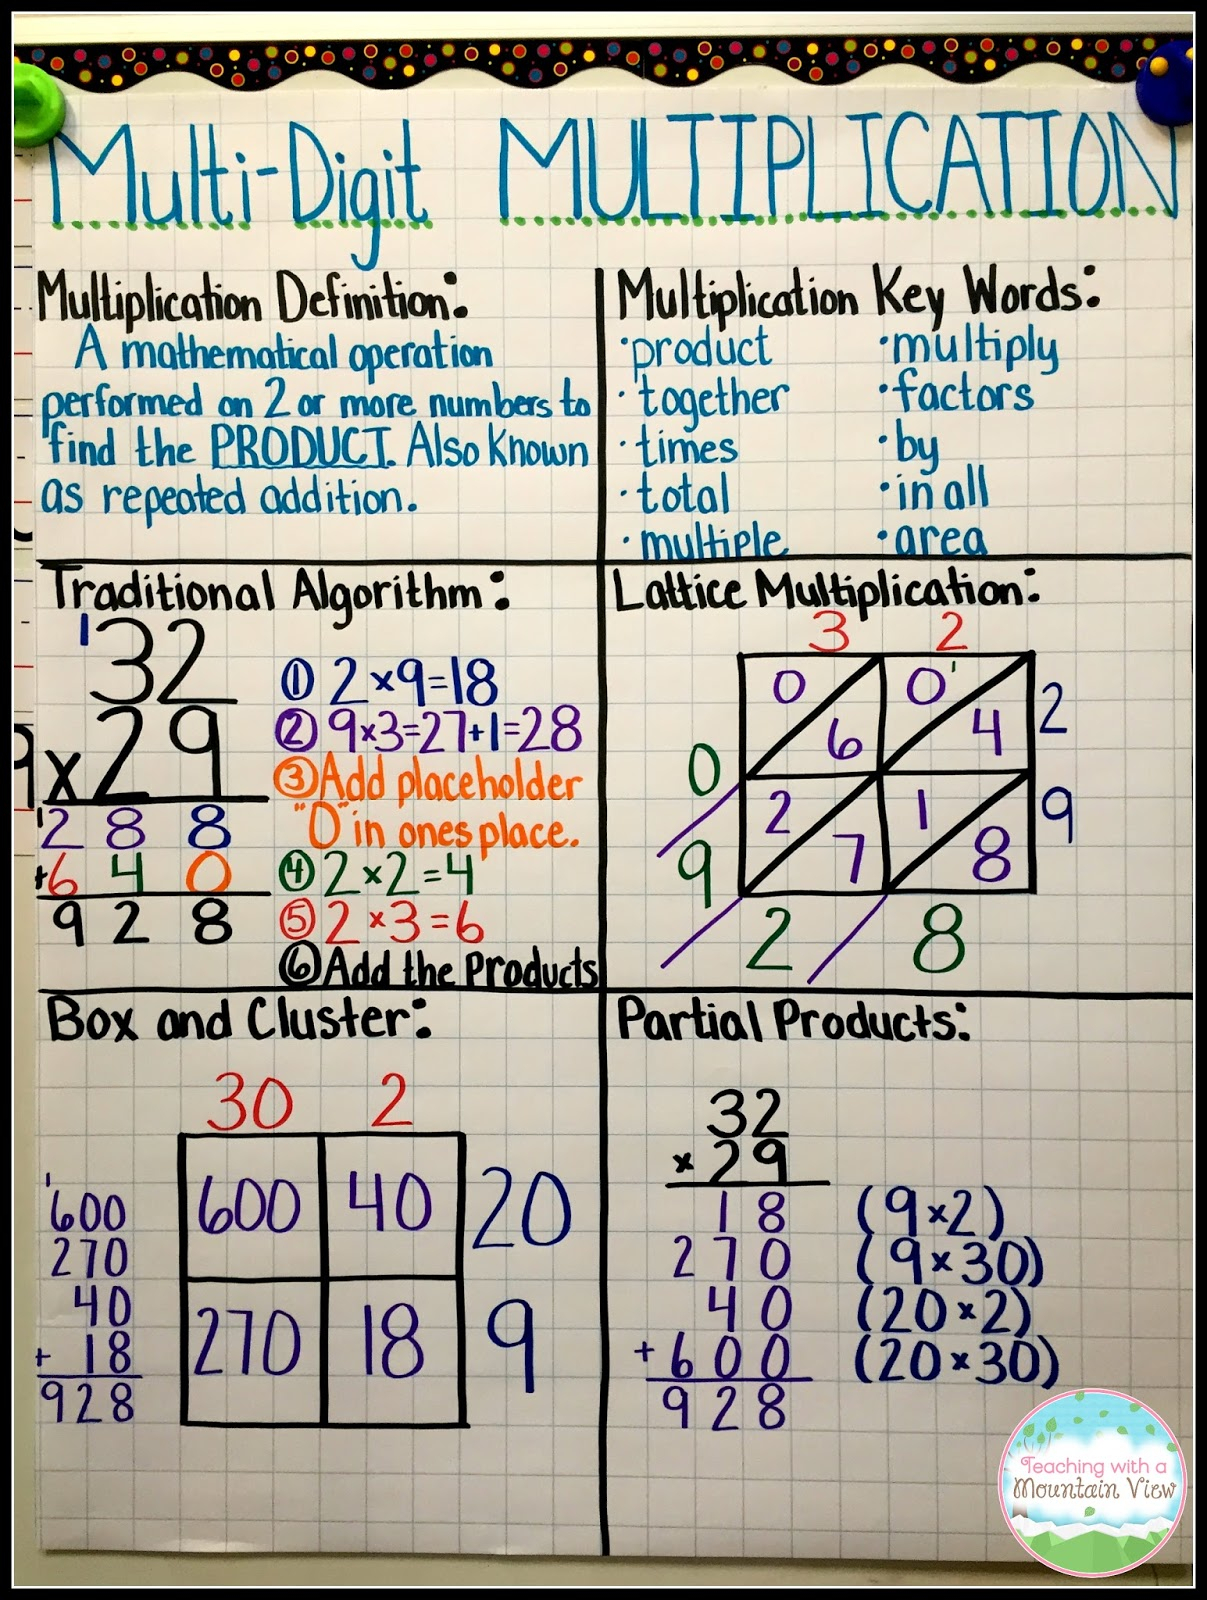 Multi-Digit MULTIPLICATION
Multiplication Definition:
A mathematical operation
performed on 2 or more numbers to
find the PRODUCT. Also Known
as repeated addition.
Multiplication Key Words:
·product
·together
·times
·total
·multiple
·multiply
·factors
·by
·in all
·area
Traditional Algorithm:
1
32
x29
1
288
+640
928
① 2×9=18
② 9×3=27+1=28
③ Add placeholder
"0" in ones place.
④ 2×2=4
⑤ 2×3=6
⑥ Add the Products
Lattice Multiplication:
3 2
0 0 1
6 4 2
0
2 1 9
7 8
9
2 8
Box and Cluster:
30 2
600 40 20
270 18 9
1
600
270
40
+ 18
928
Partial Products:
32
×29
18 (9×2)
270 (9×30)
40 (20×2)
+600 (20×30)
928
Teaching with a
Mountain View